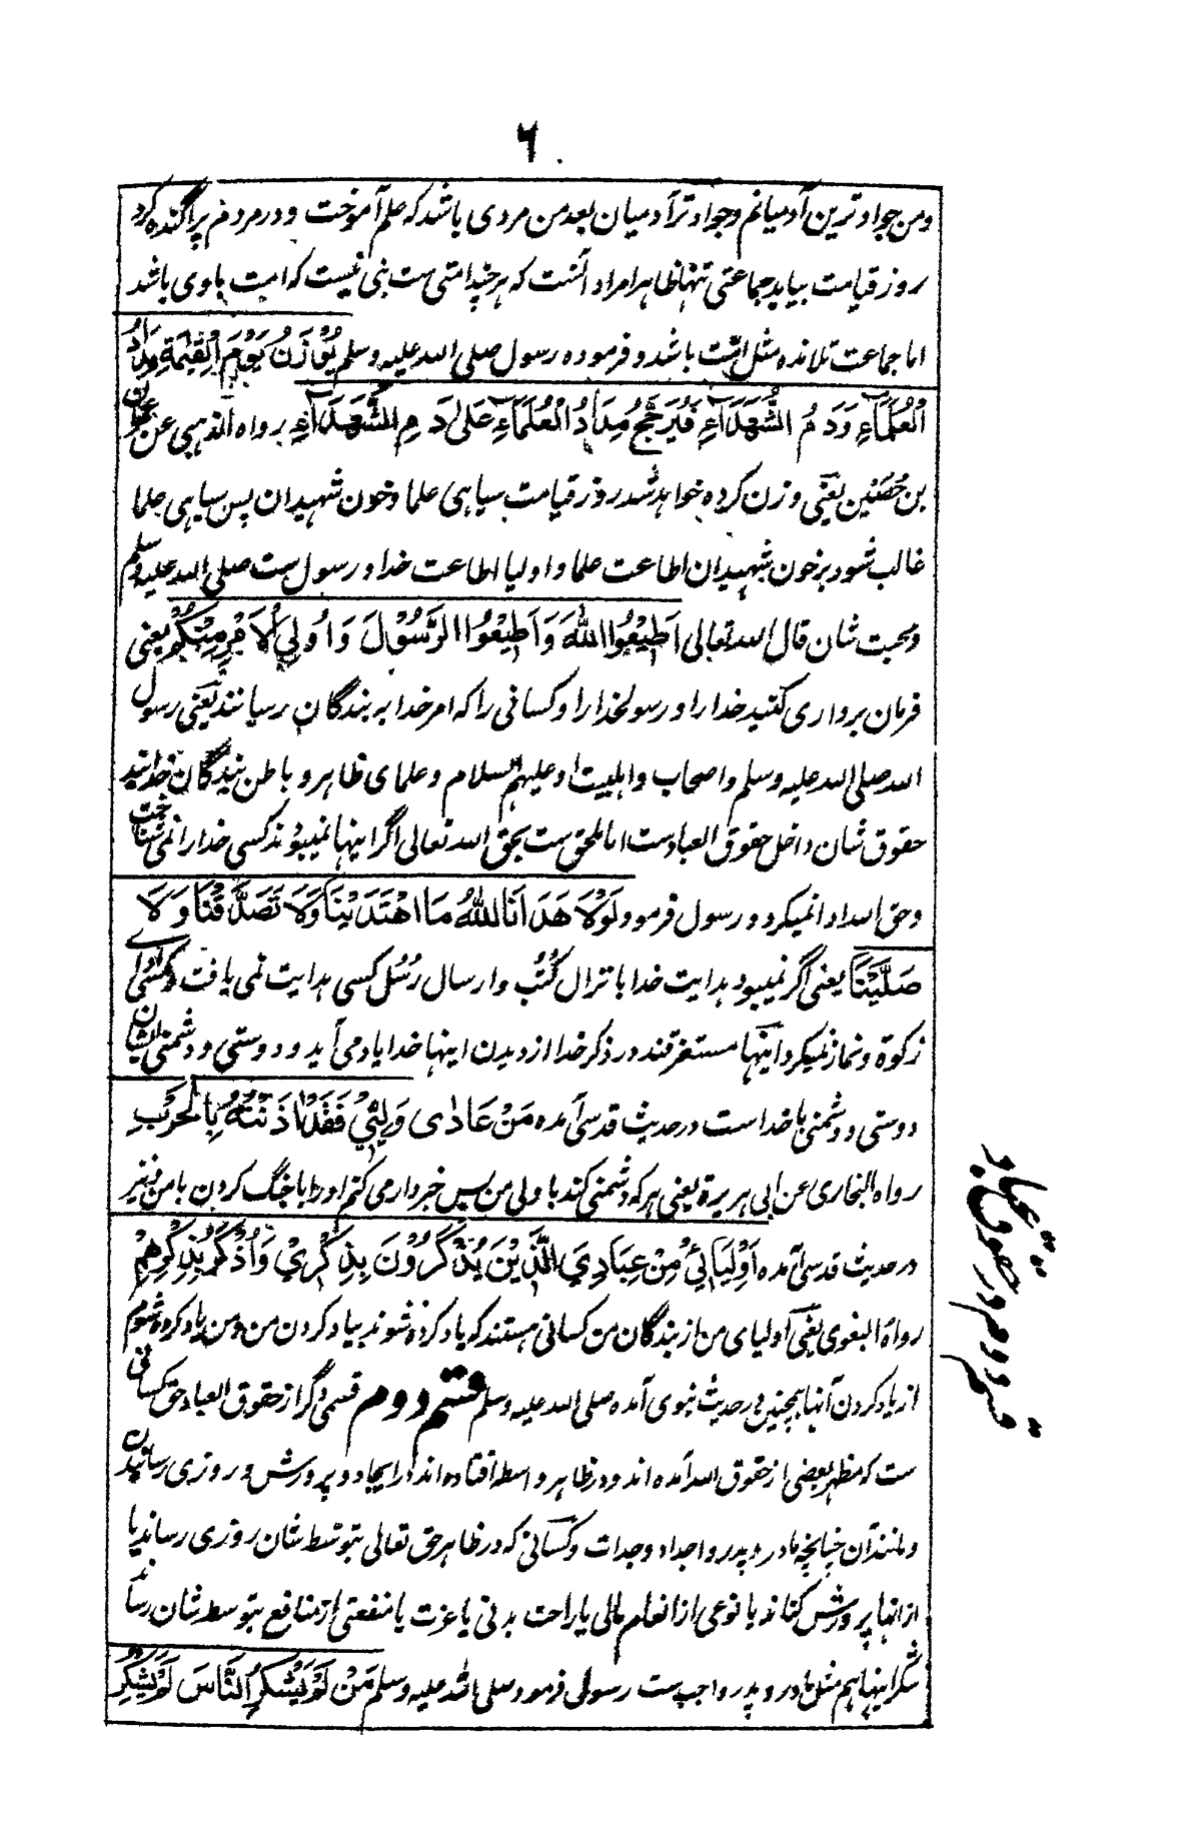 ٦
ومن جواد ترین آدمیانم وجواد تر آدمیان بعد من مردی باشد که علم آموخت و در مردم پراگنده کرد
روز قیامت بیاید جماعتی تنها ظاهرا مراد آنست که هر چند امتی ست بنی نیست که امت باوی باشد
اما جماعت تلامذه مثل امت باشد و فرموده رسول صلی الله علیه وسلم یُوْزَنُ یَوْمَ الْقِیٰمَةِ مِدَادُ
الْعُلَمَآءِ وَدَمُ الشُّهَدَآءِ فَیُرَجَّحُ مِدَادُ الْعُلَمَآءِ عَلٰی دَمِ الشُّهَدَآءِ رواه الذهبی عن عمران
بن حُصَین یعنی وزن کرده خواهد شد روز قیامت سیاهی علما وخون شهیدان پس سیاهی علما
غالب شود بر خون شهیدان اطاعت علما و اولیا اطاعت خدا و رسول ست صلی الله علیه وسلم
ومحبت شان قال الله تعالی اَطِیْعُوا اللّٰهَ وَاَطِیْعُوا الرَّسُوْلَ وَاُولِی الْاَمْرِ مِنْکُمْ یعنی
فرمان برداری کنید خدا را و رسول خدا را و کسانی را که امر خدا به بندگان رسانند یعنی رسول
الله صلی الله علیه وسلم واصحاب واهلبیت او علیهم السلام وعلمای ظاهر و باطن بندگان خدا اند
حقوق شان داخل حقوق العباد ست اما ملحق ست بحق الله تعالی اگر اینها نمیبودند کسی خدا را نمی شناخت
وحق الله ادا نمیکرد و رسول فرمود لَوْلَا هَدَانَا اللّٰهُ مَا اهْتَدَیْنَا وَلَا تَصَدَّقْنَا وَلَا
صَلَّیْنَا یعنی اگر نمیبود هدایت خدا بانزال کُتُب وارسال رُسُل کسی هدایت نمی یافت و کسی ادای
زکوة ونماز نمیکرد اینها مستغرقند در ذکر خدا از دیدن اینها خدا یاد می آید و دوستی و دشمنی ایشان
دوستی و دشمنی باخداست در حدیث قدسی آمده مَنْ عَادٰی وَلِیِّیْ فَقَدْ اٰذَنْتُهُ بِالْحَرْبِ
رواه البخاری عن ابی هریرة یعنی هر که دشمنی کند با ولی من پس خبردار می کنم او را با جنگ کردن با من ونیز
در حدیث قدسی آمده اَوْلِیَائِیْ مِنْ عِبَادِیَ الَّذِیْنَ یُذْکَرُوْنَ بِذِکْرِیْ وَاُذْکَرُ بِذِکْرِهِمْ
رواه البغوی یعنی اولیای من از بندگان من کسانی هستند که یاد کرده شوند بیاد کردن من ومن یاد کرده شوم
از یاد کردن آنها همچنین در حدیث نبوی آمده صلی الله علیه وسلم قسم دوم قسمی دگر از حقوق العباد حق کسانی
ست که مظهر بعضی از حقوق الله آمده اند و در ظاهر واسطه افتاده اند در ایجاد و پرورش و روزی رسانیدن
ومانند آن چنانچه مادر و پدر و اجداد وجدات و کسانی که در ظاهر حق تعالی بتوسط شان روزی رساند یا
از انها پرورش کناند یا نوعی از انعام مالی یا راحت بدنی یا عزت یا منفعتی از منافع بتوسط شان رساند
شکر اینها هم مثل مادر و پدر واجب ست رسول فرمود صلی الله علیه وسلم مَنْ لَّمْ یَشْکُرِ النَّاسَ لَمْ یَشْکُرِ
قسم دوم در حقوق